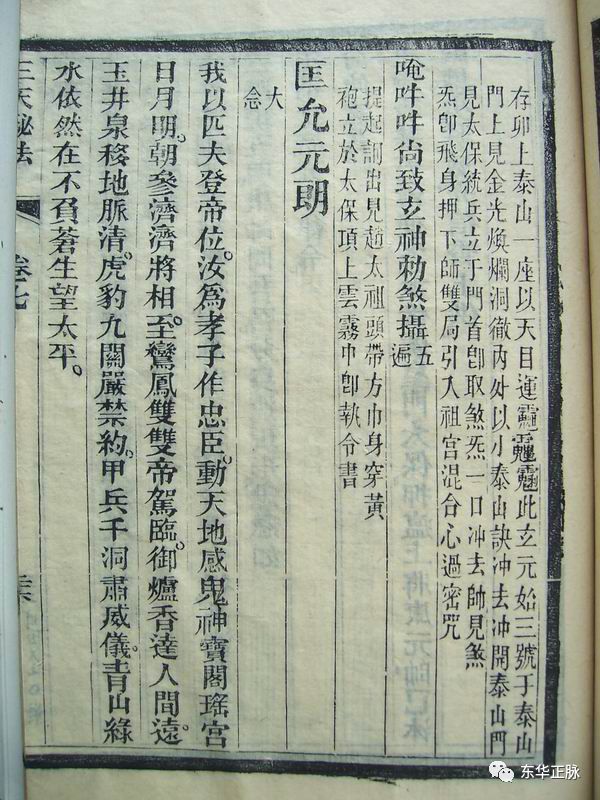 存卯上泰山一座以天目運䨻䨺䨩此玄元始三號于泰山
門上見金光煥爛洞徹內外以小泰山訣沖去沖開泰山門
見太保統兵立于門首卽取煞炁一口沖去師見煞
炁卽飛身押下師雙局引入祖宮混合心過密咒
唵吽吽尙致玄神勅煞攝五遍
提起訇出見趙太祖頭帶方巾身穿黃
袍立於太保項上雲霧中卽執令書
匡允元朗
大念
我以匹夫登帝位。汝爲孝子作忠臣。動天地感鬼神寶閣瑤宮
日月明。朝參濟濟將相至。鸞鳳雙雙帝駕臨。御爐香達人間遠。
玉井泉移地脈清。虎豹九關嚴禁約。甲兵千洞肅威儀。靑山綠
水依然在不負蒼生望太平。
三天秘法
卷七
东华正脉